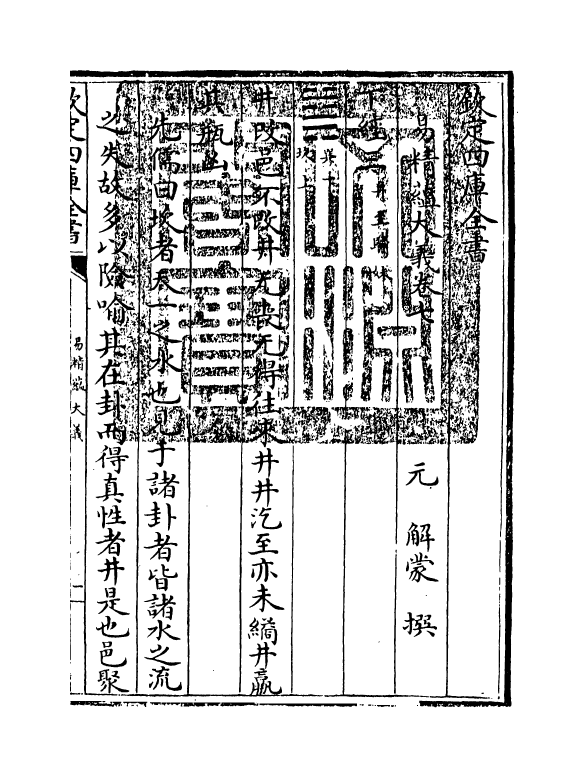 欽定四庫全書
易精蘊大義卷七 元 解蒙 撰
下經 井至歸妹
巽下
坎上
井改邑不改井无喪无得往來井井汔至亦未繘井羸
其瓶凶
先儒曰坎者天一之水也見于諸卦者皆諸水之流
之失故多以險喻其在卦而得真性者井是也邑聚
欽定四庫全書
易精蘊大義